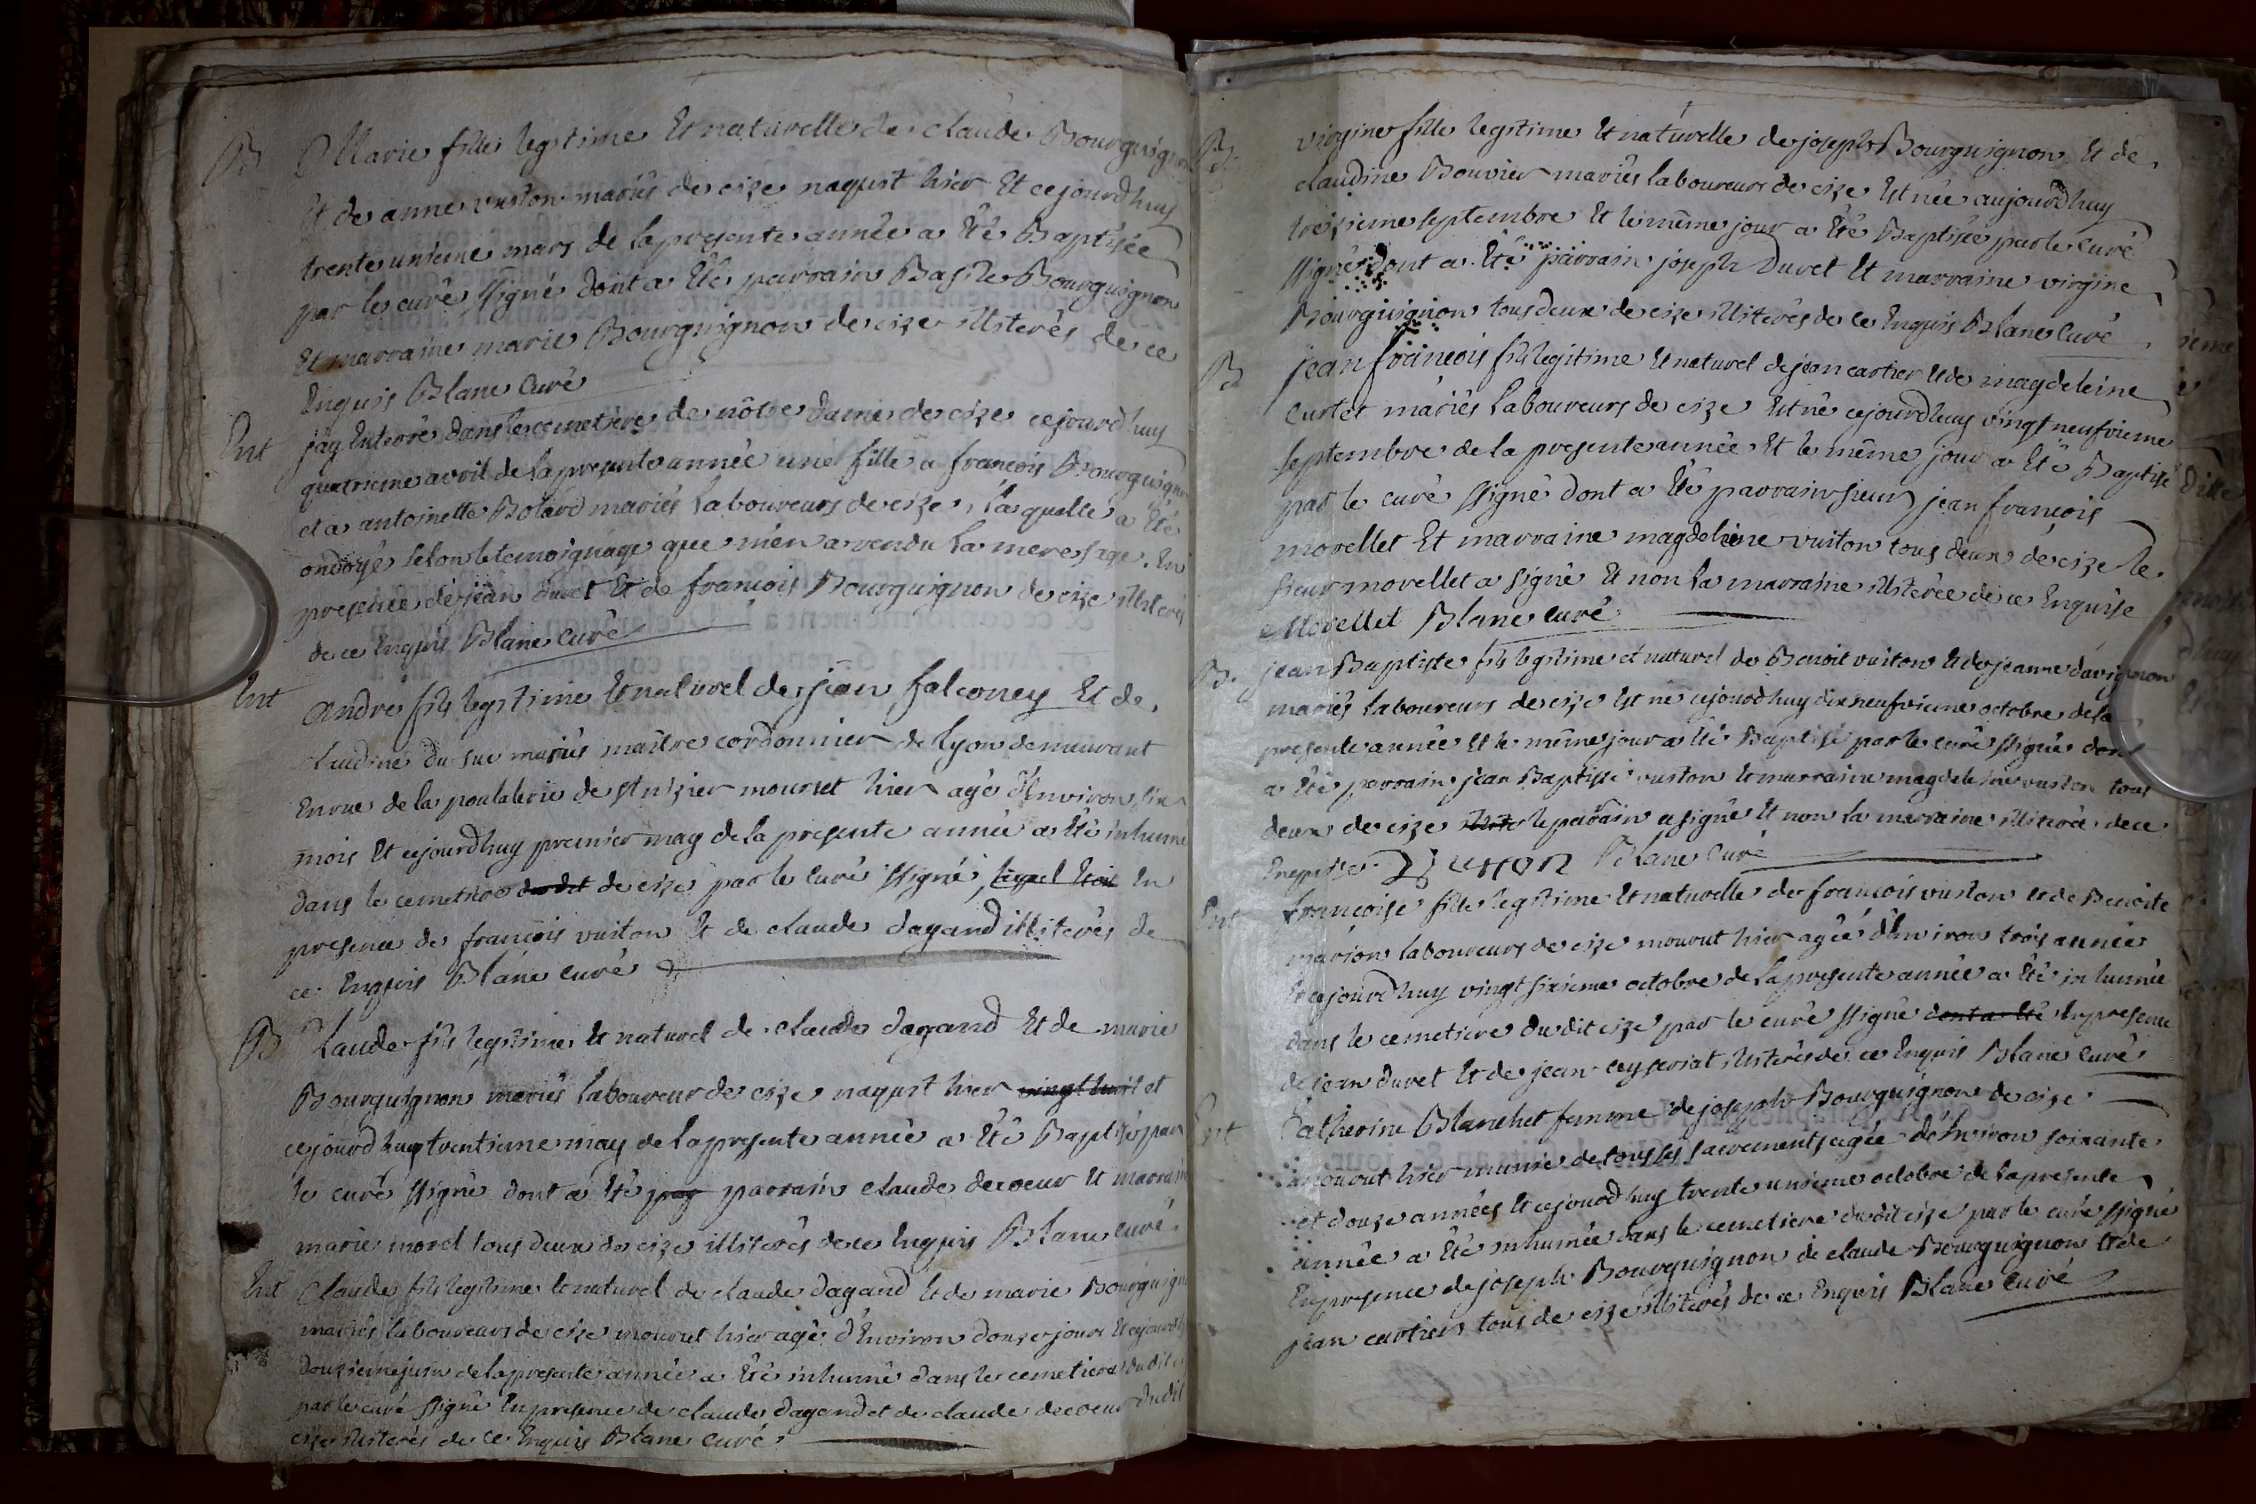 B Marie fille legitime Et naturelle de claude Bourguignon
Et de anne vuiton mariés de cize naquit hier Et cejourdhuy
trente unieme mars de la presente année a Eté Baptisée
par le curé ssigné dont a Eté parrain Basile Bourguignon
Et marraine marie Bourguignon de cize illiterés de ce
Enquis Blanc Curé
Ent jay Enterré dans le cemetiere de nôtre dame de cize cejourdhuy
quatrieme avril de la presente année une fille a francois Bourguignon
et a antoinette Bolard mariés laboureurs de cize, laquelle a Eté
ondoyé selon le temoignage que m'en a rendu la mere sage. En
presence de jean duret Et de francois Bourguignon de cize illiterés
de ce Enquis Blanc curé
Ent andre fils legitime Et naturel de jean falconey Et de
claudine du suc mariés maître cordonnier de Lyon demeurant
En rue de la poulalerie de st nizier mourut hier agé d'Environ six
mois Et cejourdhuy premier may de la presente année a Eté inhumé
dans le cemetiere du dit de cize par le Curé ssigné, lequel Etoit En
presence de francois vuiton Et de claude dagand illiterés de
ce Enquis Blanc curé
B Claude fils legitime Et naturel de claude dagand Et de marie
Bourguignon mariés laboureur de cize naquit hier vingt huit et
cejourdhuy trentieme may de la presente année a Eté Baptisé par
le curé ssigné dont a Eté par parrain claude decoeur Et marraine
marie morel tous deux de cize illiterés de ce Enquis Blanc curé
Ent Claude fils legitime Et naturel de claude dagand Et de marie Bourguignon
mariés laboureurs de cize mourut hier agé d'Environ douze jours Et cejourdhuy
douzieme juin de la presente année a Eté inhumé dans le cemetiere du dit
par le curé ssigné En presence de claude dagand et de claude decoeur du dit
cize illiterés de ce Enquis Blanc curé
B virgine fille legitime Et naturelle de joseph Bourguignon Et de
claudine Bouvier mariés laboureurs de cize Est née aujourdhuy
treizieme septembre Et le même jour a Eté Baptisée par le Curé
ssigné dont a Eté parrain joseph Duret Et marraine virgine
Bourguignon tous deux de cize illiterés de ce Enquis Blanc Curé
B jean francois fils legitime Et naturel de jean cartier Et de magdeleine
Curtet mariés laboureurs de cize Est né cejourdhuy vingt neufvieme
septembre de la presente année Et le même jour a Eté Baptisé
par le curé ssigné dont a Eté parrain sieur jean francois
morellet Et marraine magdeleine vuiton tous deux de cize le
sieur morellet a signé Et non la marraine illiterée de ce Enquise
Morellet Blanc curé
B. jean Baptiste fils legitime et naturel de Benoit vuiton Et de jeanne davignon
mariés laboureurs de cize Est né cejourdhuy dix neufvieme octobre de la
presente année Et le même jour a Eté Baptisé par le curé ssigné dont
a Eté parrain jean Baptiste vuiton Et marraine magdeleine vuiton tous
deux de cize illite le parrain a signé Et non la marraine illiterée de ce
Enquise. Vuiton Blanc Curé
Ent francoise fille legitime Et naturelle de francois vuiton et de Benoite
marion laboureurs de cize mourut hier agée d'Environ trois année
Et cejourdhuy vingt sixieme octobre de la presente année a Eté inhumée
dans le cemetiere du dit cize par le curé ssigné dont a Eté En presence
de jean duret Et de jean ceyseriat illiterés de ce Enquis Blanc Curé
Ent Catherine Blanchet femme de joseph Bourguignon de cize
mourut hier munie de tous les sacrements agée d'Environ soixante
et douze années Et cejourdhuy trente unieme octobre de la presente
année a Eté inhumée dans le cemetiere du dit cize par le curé ssigné
En presence de joseph Bourguignon de claude Bourguignon Et de
jean cartier tous de cize illiterés de ce Enquis Blanc curé